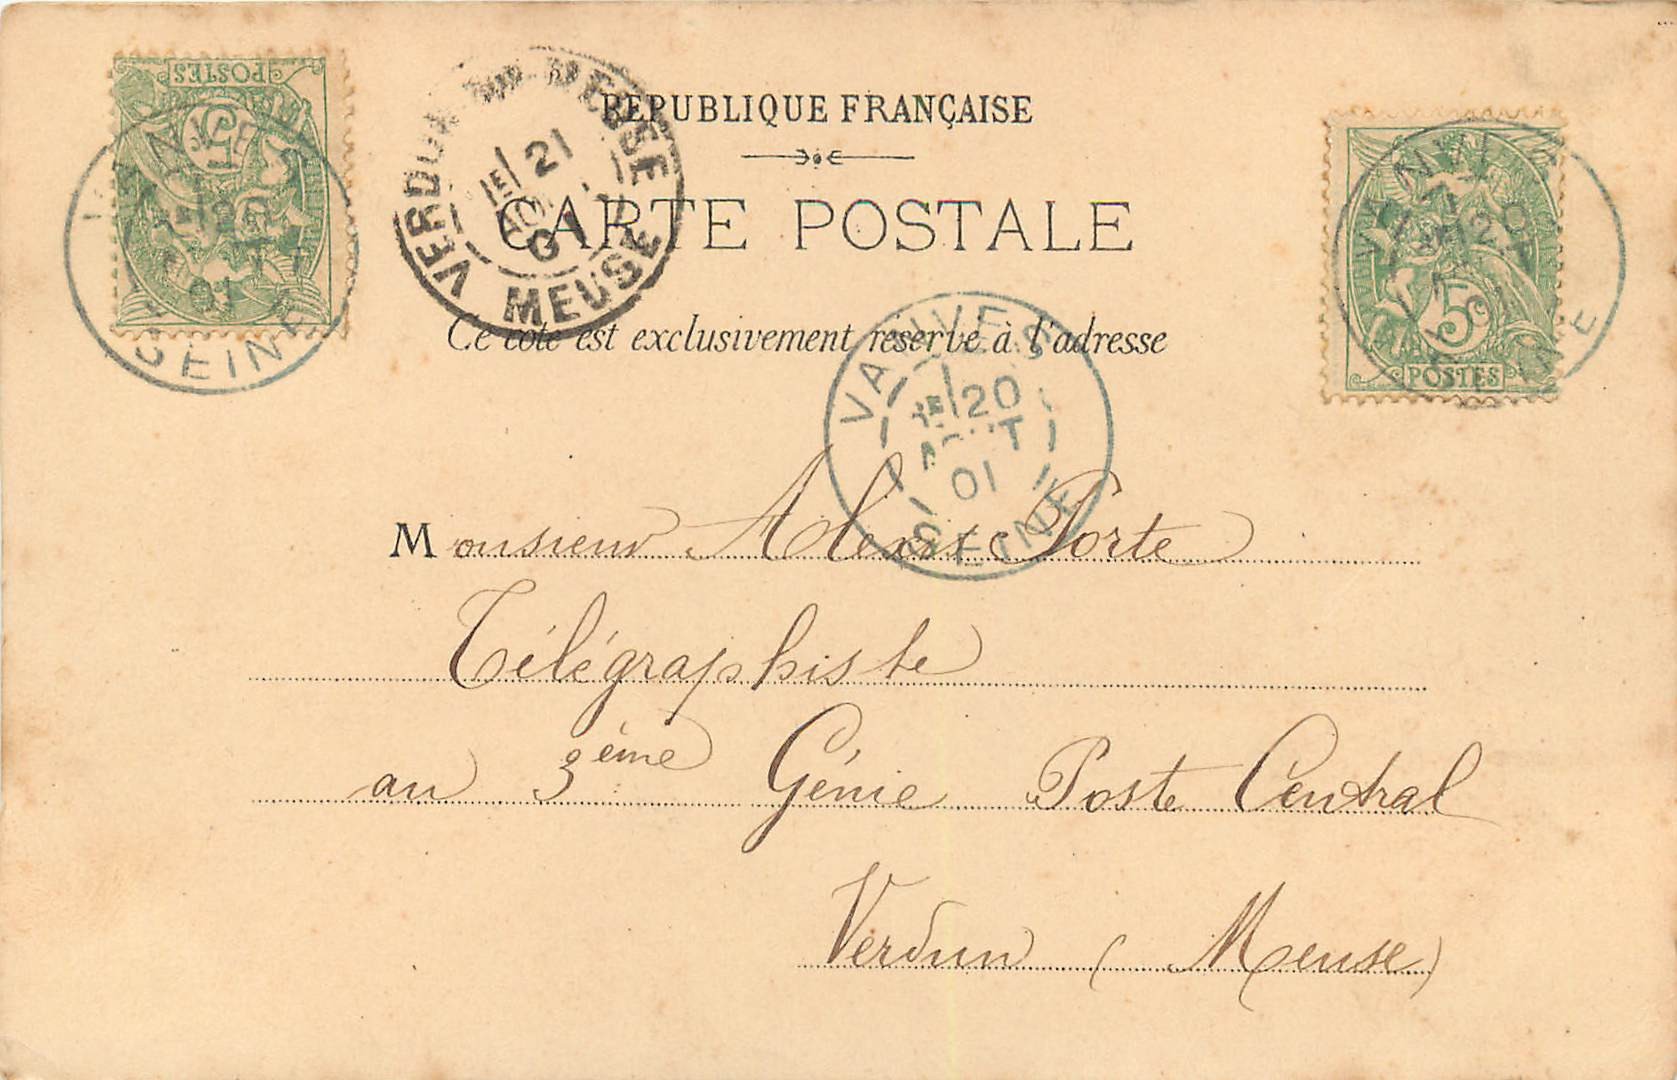 RÉPUBLIQUE FRANÇAISE
CARTE POSTALE
Ce côté est exclusivement réservé à l'adresse
Monsieur Alexis Porte
Télégraphiste
au 3ème Génie Poste Central
Verdun (Meuse)
POSTES
5
SEINE
01
VERDUN SUR MEUSE
21
AOUT
01
MEUSE
VANVES
20
AOUT
01
SEINE
20
5
POSTES